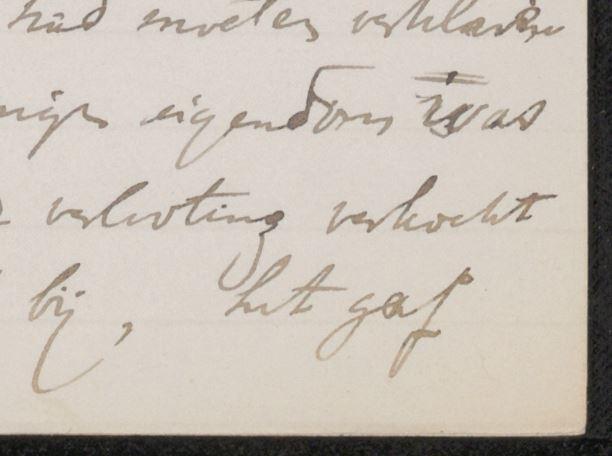 had moeten verklaren
eigendom was
verloting verkocht
bij, het gaf